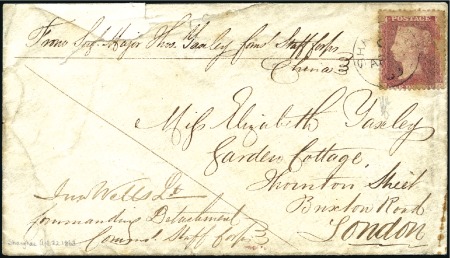 POSTAGE
From Sergt Major Thos. Yaxley Comt Staff Corps
China
Miss Elizabeth Yaxley
Garden Cottage,
Thornton Street
Brixton Road
London
Jno Wells Lt
Commanding Detachment
Commt Staff Corps
Shanghai